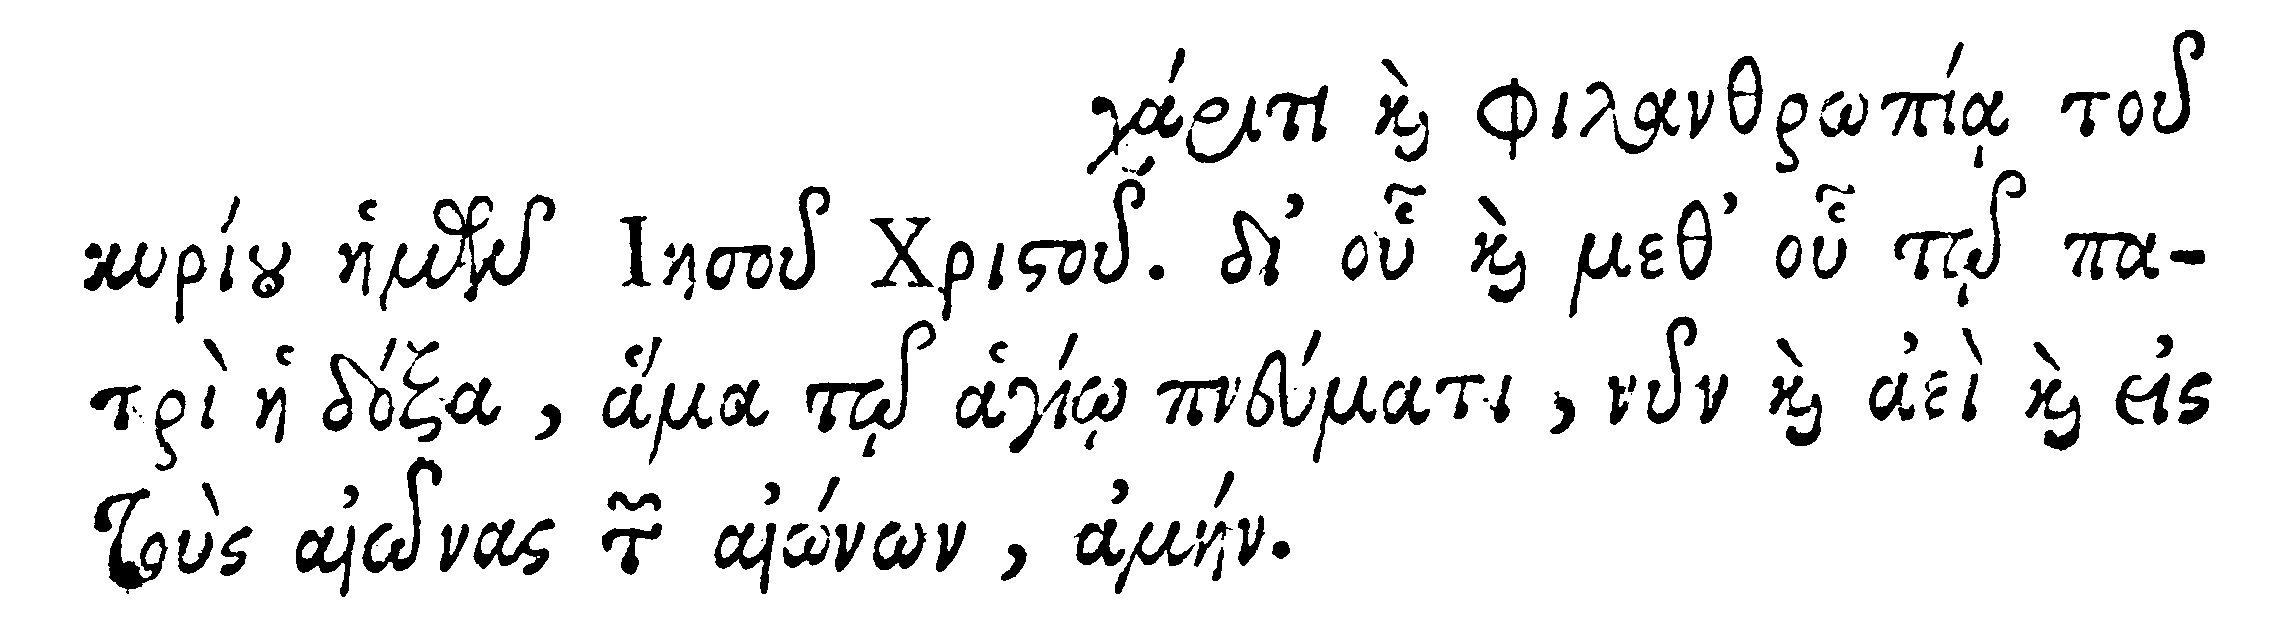 χάριτι καὶ φιλανθρωπίᾳ τοῦ
κυρίου ἡμῶν Ιησοῦ Χριστοῦ. δι᾽ οὗ καὶ μεθ᾽ οὗ τῷ πα-
τρὶ ἡ δόξα, ἅμα τῷ ἁγίῳ πνεύματι, νῦν καὶ ἀεὶ καὶ εἰς
τοὺς αἰῶνας τῶν αἰώνων, ἀμήν.